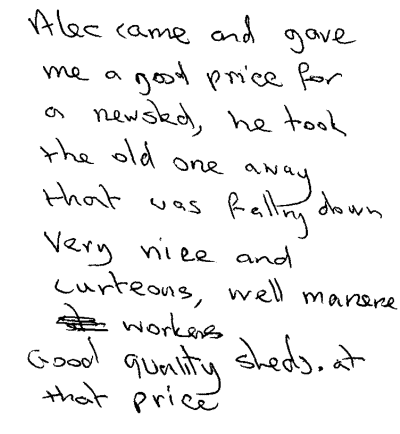 Alec came and gave
me a good price for
a newshed, he took
the old one away
that was falling down
Very nice and
curteous, well manere
workers
Good quality sheds. at
that price